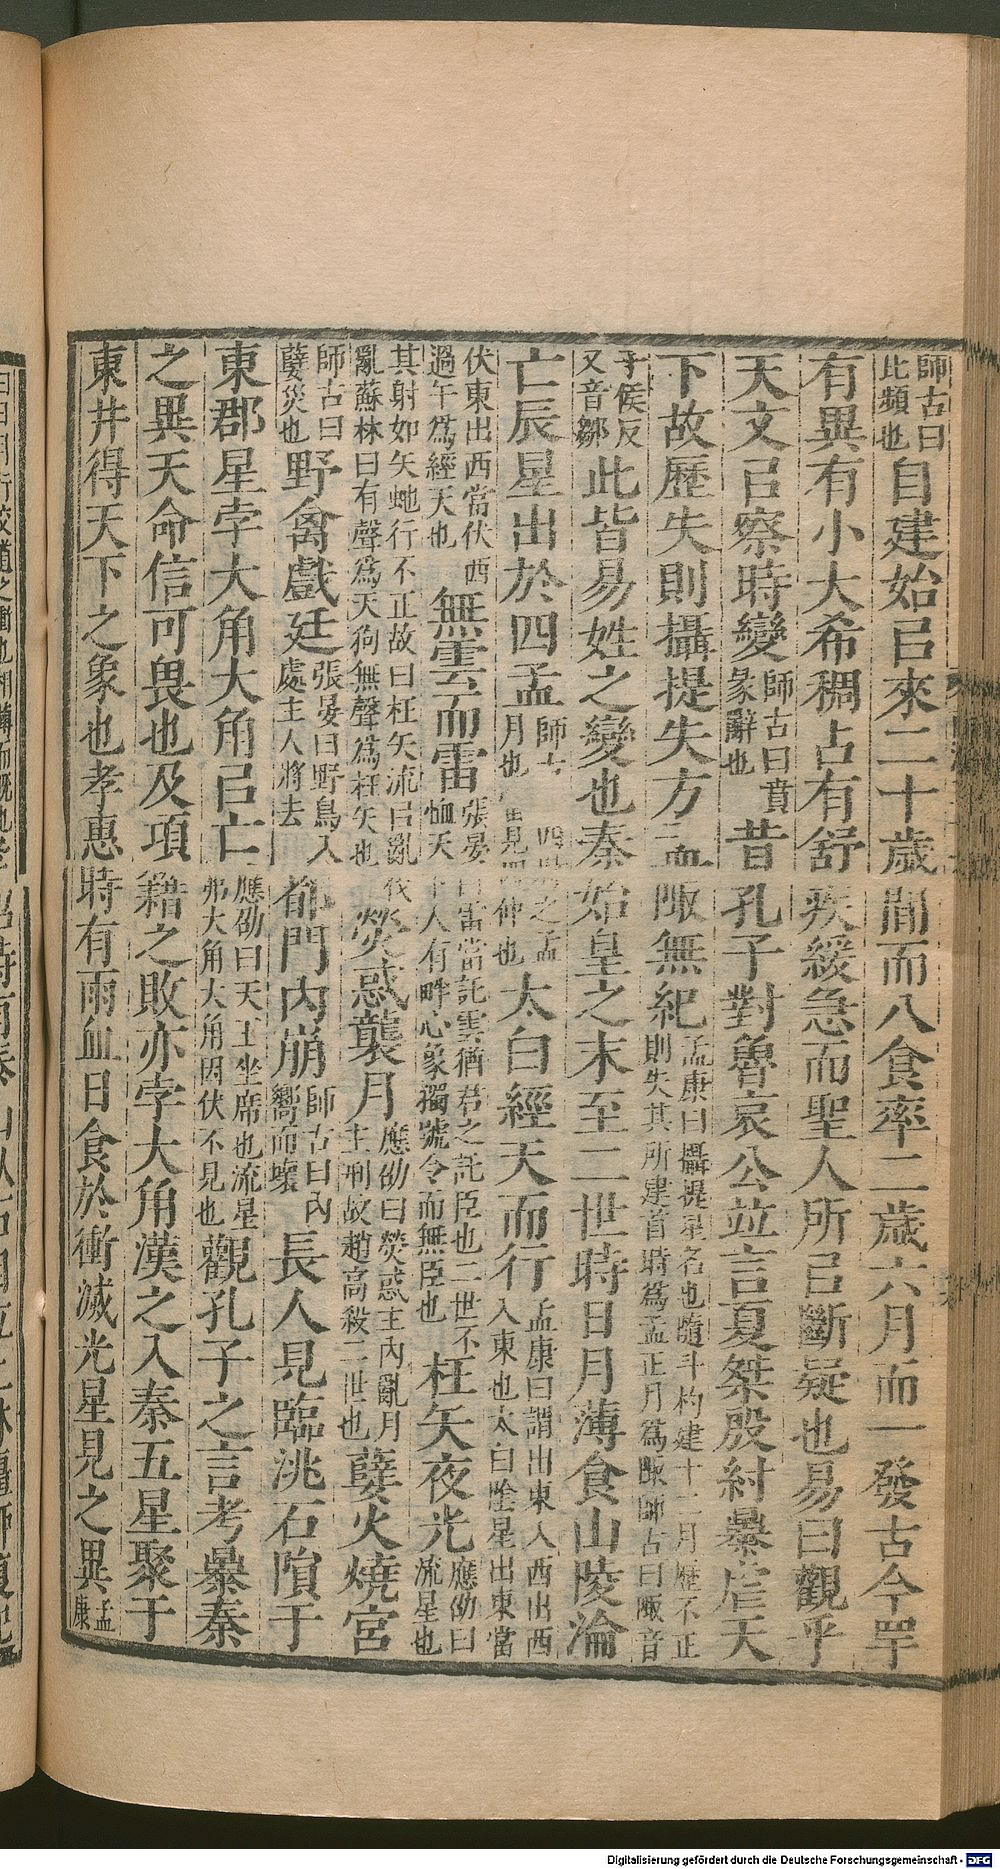 師古曰比頻也自建始㠯來二十歲間而八食率二歲六月而一發古今罕
有異有小大希稠占有舒疾緩急而聖人所㠯斷疑也易曰觀乎
天文㠯察時變師古曰賁彖辭也昔孔子對魯哀公竝言夏桀殷紂暴虐天
下故歷失則攝提失方孟陬無紀孟康曰攝提星名也隨斗杓建十二月歷不正則失其所建首時為孟正月為陬師古曰陬音
子侯反又音鄒此皆易姓之變也秦始皇之末至二世時日月薄食山陵淪
亡辰星出於四孟師古 四時之孟月也 見 仲也太白經天而行孟康曰謂出東入西出西入東也太白陰星出東當
伏東出西當伏西過午為經天也無雲而雷張晏曰雷當託雲猶君之託臣也二世不恤天下人有畔心象獨號令而無臣也枉矢夜光應劭曰流星也
其射如矢虵行不正故曰枉矢流㠯亂伐亂蘇林曰有聲為天狗無聲為枉矢也熒惑襲月應劭曰熒惑主內亂月主刑故趙高殺二世也孽火燒宮
師古曰孽災也野禽戲廷張晏曰野鳥入處主人將去都門內崩師古曰內嚮而壞長人見臨洮石隕于
東郡星孛大角大角㠯亡應劭曰天王坐席也流星弗大角大角因伏不見也觀孔子之言考暴秦
之異天命信可畏也及項籍之敗亦孛大角漢之入秦五星聚于
東井得天下之象也孝惠時有雨血日食於衝滅光星見之異孟康
Digitalisierung gefördert durch die Deutsche Forschungsgemeinschaft - DFG